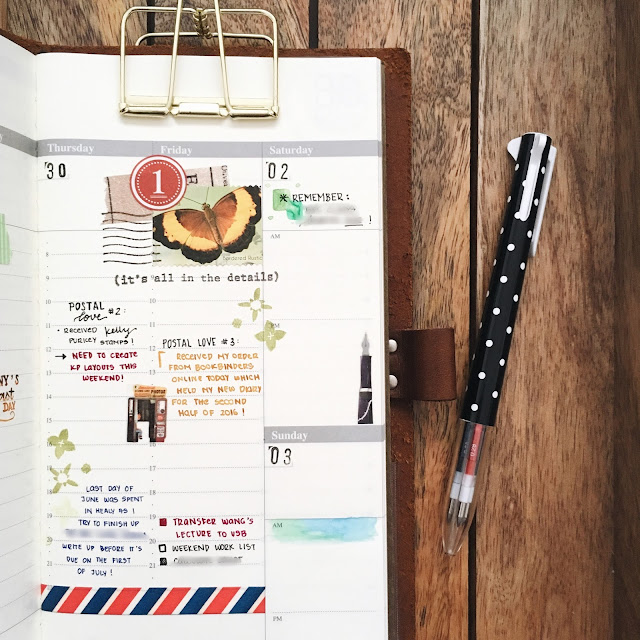 Thursday
30
POSTAL
love #2:
• RECEIVED Kelly
PURKEY STAMPS!
→ NEED TO CREATE
KP LAYOUTS THIS
WEEKEND!
LAST DAY OF
JUNE WAS SPENT
IN HEALY AS!
TRY TO FINISH UP
WRITE UP BEFORE IT'S
DUE ON THE FIRST
OF JULY!
Friday
1
(it's all in the details)
POSTAL LOVE #3:
RECEIVED MY ORDER
FROM BOOKBINDERS
ONLINE TODAY WHICH
HELD MY NEW DIARY
FOR THE SECOND
HALF OF 2016!
TRANSFER WANG'S
LECTURE TO USB
WEEKEND WORK LIST
Saturday
02
* REMEMBER:
!
AM
PM
Sunday
03
AM
PM
NY'S
DAY
8
9
10
11
12
13
14
15
16
17
18
19
20
21